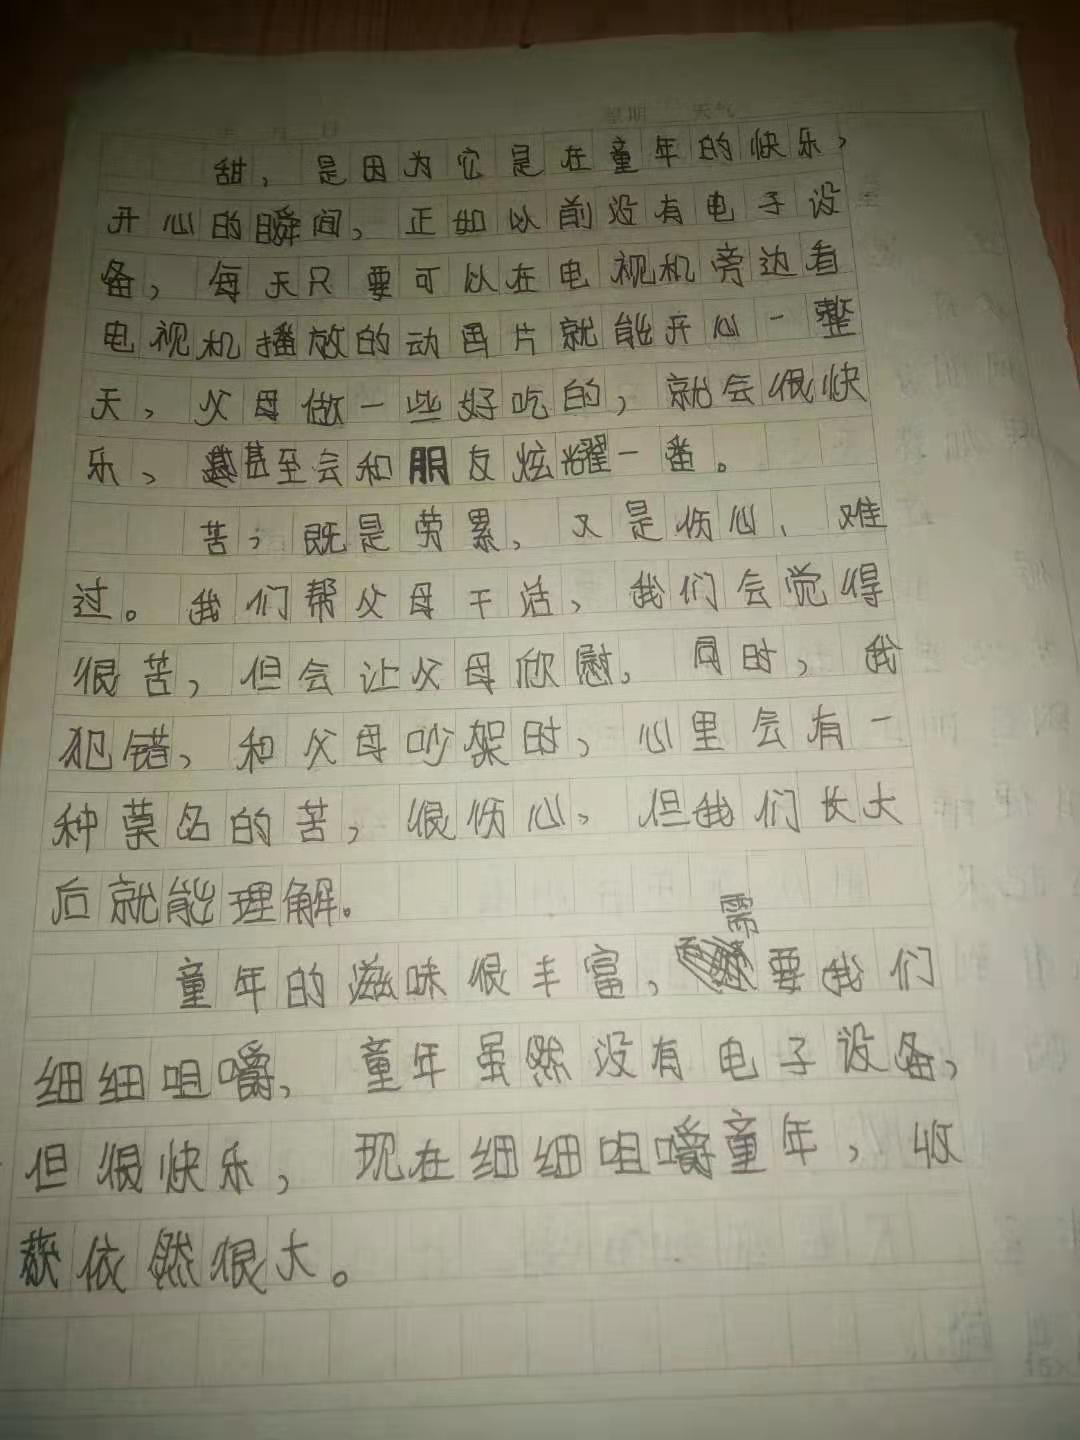 星期 天气
甜，是因为它是在童年的快乐，
开心的瞬间，正如以前没有电子设
备，每天只要可以在电视机旁边看
电视机播放的动画片就能开心一整
天，父母做一些好吃的，就会很快
乐，甚至会和朋友炫耀一番。
苦，既是劳累，又是伤心、难
过。我们帮父母干活，我们会觉得
很苦，但会让父母欣慰。同时，我
犯错，和父母吵架时，心里会有一
种莫名的苦，很伤心，但我们长大
后就能理解。
需
童年的滋味很丰富，要我们
细细咀嚼，童年虽然没有电子设备，
但很快乐，现在细细咀嚼童年，收
获依然很大。